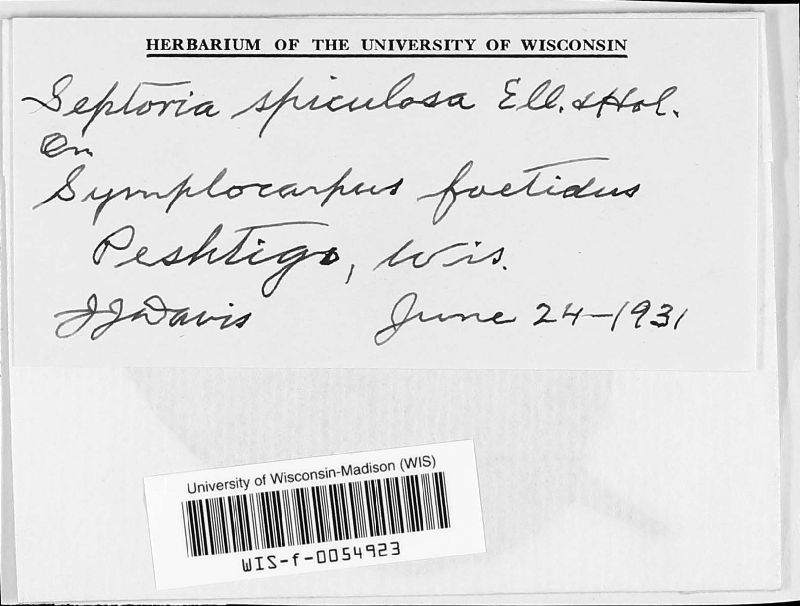 HERBARIUM OF THE UNIVERSITY OF WISCONSIN
Septoria spiculosa Ell. & Hol.
On
Symplocarpus foetidus
Peshtigo, Wis.
JJ Davis June 24-1931
University of Wisconsin-Madison (WIS)
WIS-f-0054923